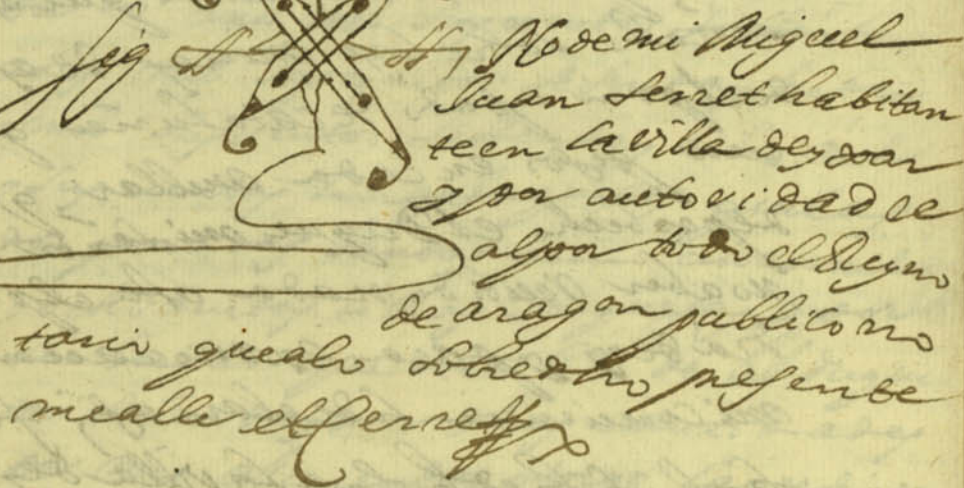 Sig No de mi Miguel
Juan Serret habitan
te en la villa de
y por autoridad re
al por todo el Reyno
de aragon publico no
tario que a lo sobredho presente
me alle et Cerre